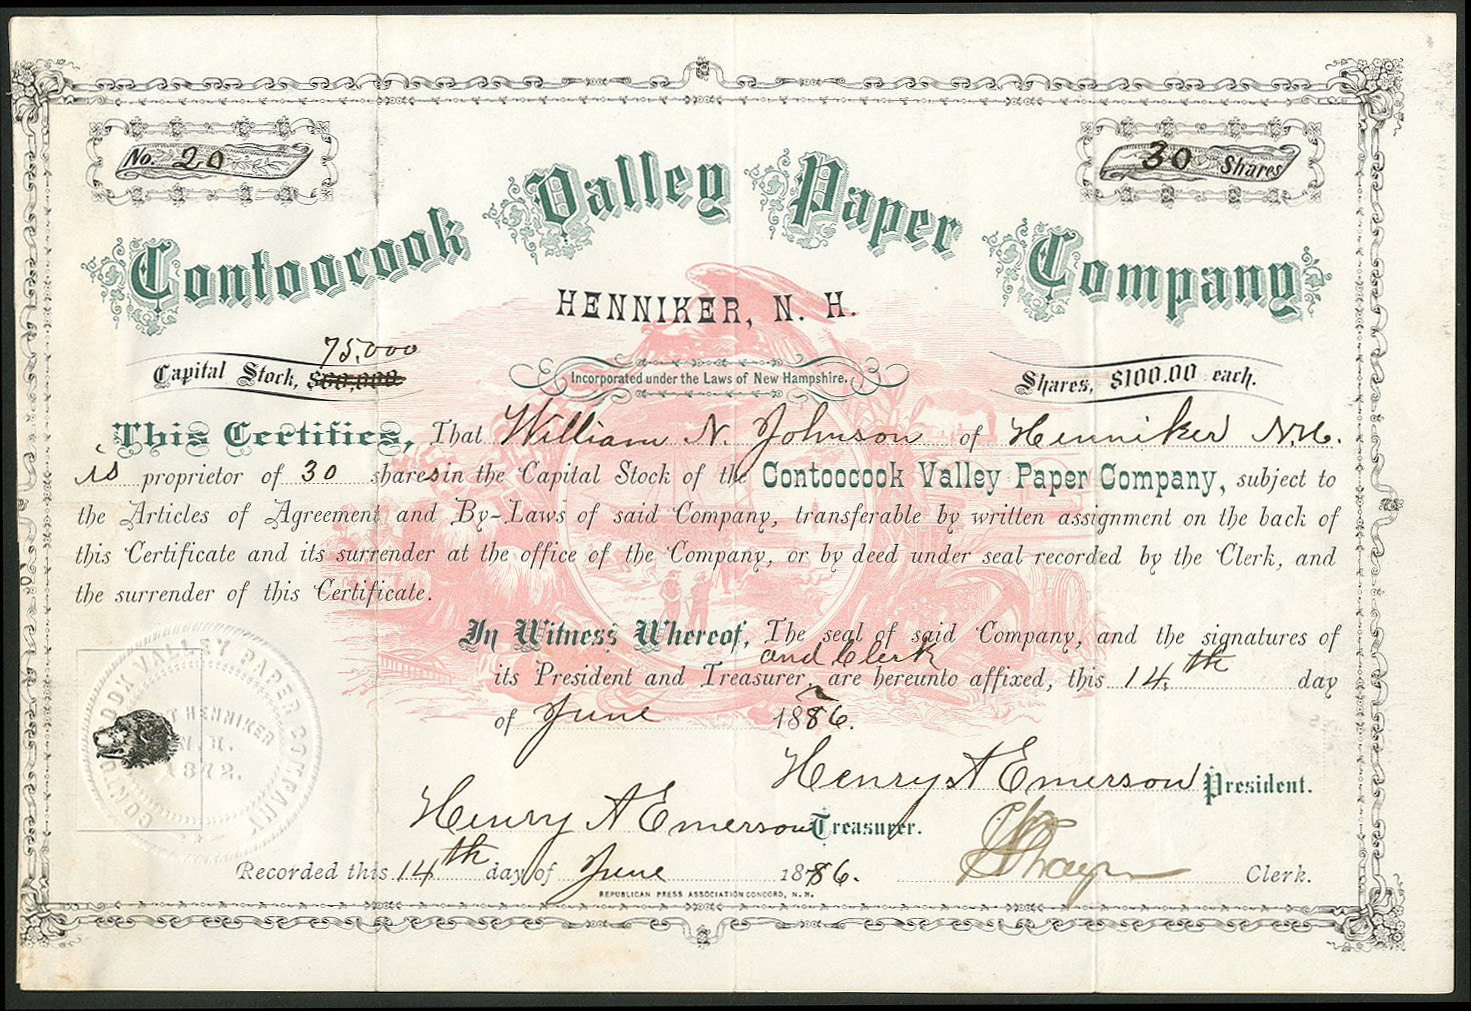 No. 20
30 Shares
Contoocook Valley Paper Company
HENNIKER, N. H.
75.000
Capital Stock, $60,000
Incorporated under the Laws of New Hampshire.
Shares, $100.00 each.
This Certifies, That William N. Johnson of Henniker N.H.
is proprietor of 30 shares in the Capital Stock of the Contoocook Valley Paper Company, subject to
the Articles of Agreement and By-Laws of said Company, transferable by written assignment on the back of
this Certificate and its surrender at the office of the Company, or by deed under seal recorded by the Clerk, and
the surrender of this Certificate.
In Witness Whereof, The seal of said Company, and the signatures of
and Clerk
its President and Treasurer, are hereunto affixed, this 14th day
of June 1886.
Henry A Emerson President.
Henry A Emerson Treasurer.
Recorded this 14th day of June 1886.
Clerk.
REPUBLICAN PRESS ASSOCIATION CONCORD, N. H.
CONTOOCOOK VALLEY PAPER COMPANY
AT HENNIKER
N.H.
1872.